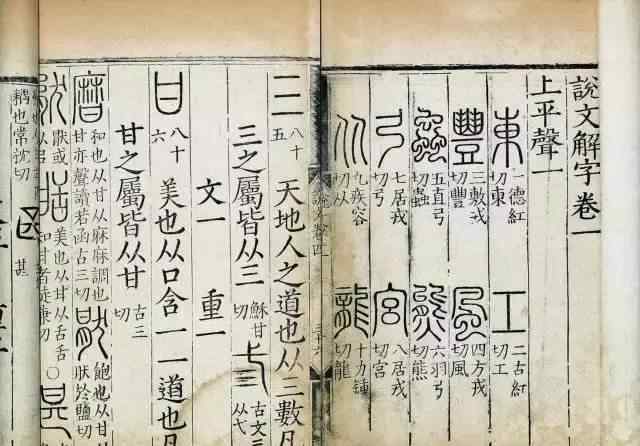 説文解字卷一
上平聲一
東 一德紅切東 工 二古紅切工
豐 三敷戎切豐 風 四方戎切風
蟲 五直弓切蟲 熊 六羽弓切熊
弓 七居戎切弓 宮 八居戎切宮
从 九疾容切从 龍 十力鍾切龍
說文卷四 三十六
三 八十五 天地人之道也从三數凡
三之屬皆从三 穌甘切 弎 古文三从弋
文一 重一
甘 八十六 美也从口含一一道也凡
甘之屬皆从甘 古三切
𪎰 和也从甘从麻麻調也甘亦聲讀若函古三切 猒 飽也从甘从肰於鹽切
猒或从 甛 美也从甘从舌舌知甘者徒兼切 ○ 甚
耦也常枕切 甚